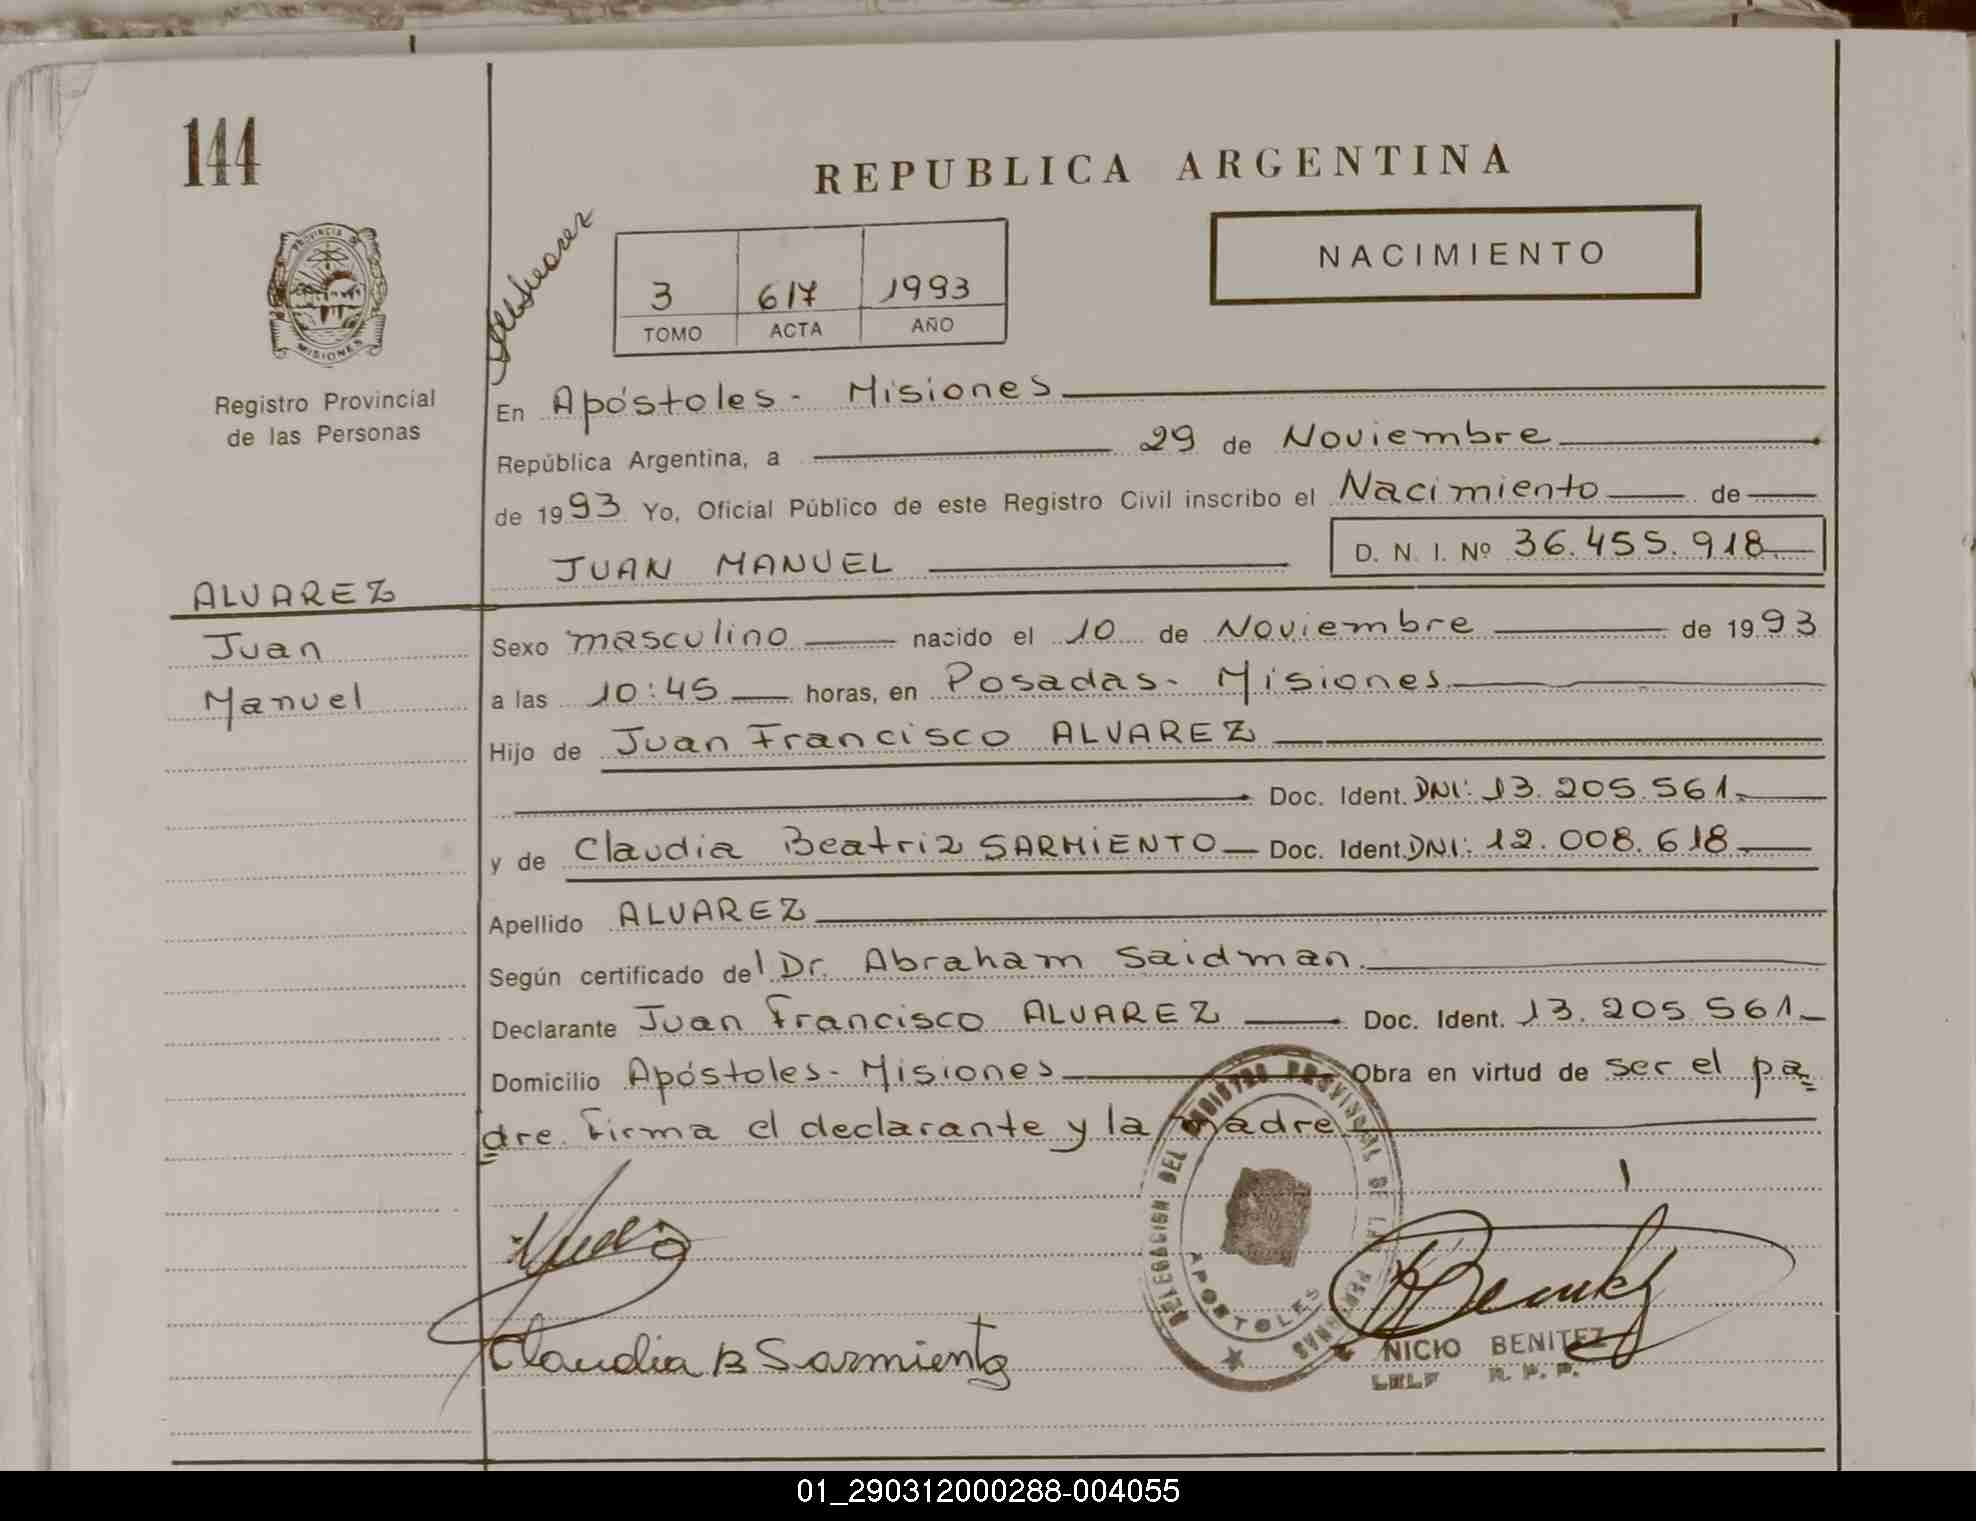 144
REPUBLICA ARGENTINA
NACIMIENTO
PROVINCIA DE
MISIONES
3 617 1993
TOMO ACTA AÑO
Registro Provincial
de las Personas
En Apóstoles - Misiones
República Argentina, a 29 de Noviembre
de 1993 Yo, Oficial Público de este Registro Civil inscribo el Nacimiento de
JUAN MANUEL D. N. I. Nº 36.455.918
ALVAREZ
Juan
Manuel
Sexo masculino nacido el 10 de Noviembre de 1993
a las 10:45 horas, en Posadas - Misiones
Hijo de Juan Francisco ALVAREZ
Doc. Ident. DNI: 13.205.561.
y de Claudia Beatriz SARMIENTO Doc. Ident. DNI: 12.008.618
Apellido ALVAREZ
Según certificado del Dr. Abraham Saidman.
Declarante Juan Francisco ALVAREZ Doc. Ident. 13.205.561
Domicilio Apóstoles - Misiones Obra en virtud de ser el pa=
=dre. Firma el declarante y la madre
DELEGACION DEL REGISTRO PROVINCIAL DE LAS PERSONAS
APOSTOLES
Claudia B Sarmiento
NICIO BENITEZ
R. P. P.
01_290312000288-004055